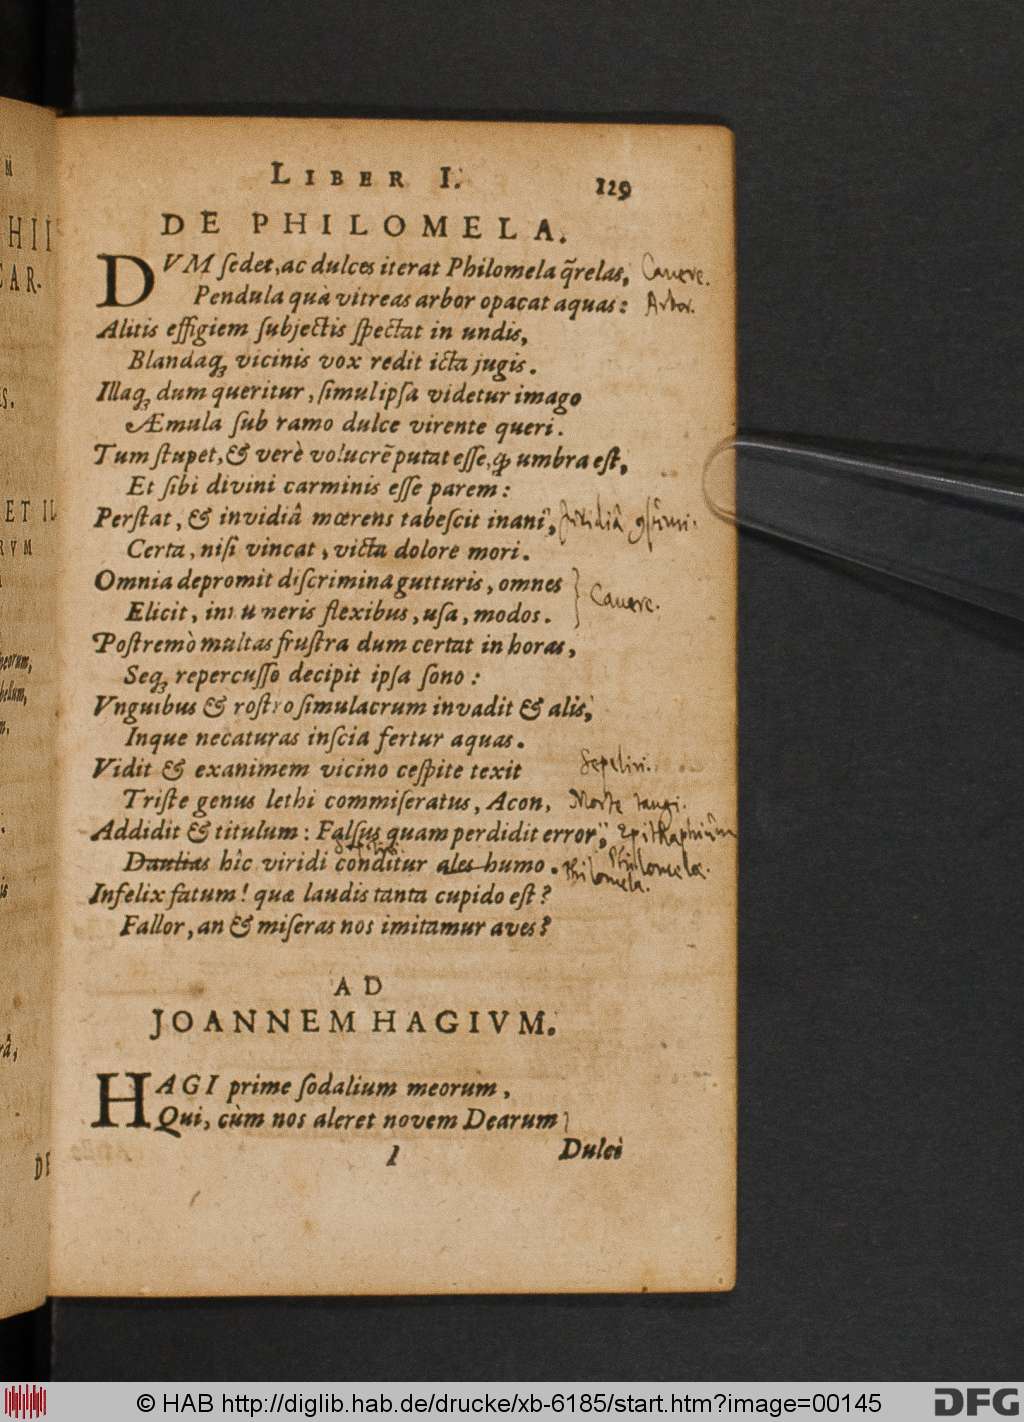 LIBER I. 129
DE PHILOMELA.
DVM ſedet, ac dulces iterat Philomela q̃relas, Canere.
Pendula quà vitreas arbor opacat aquas: Arbor.
Alitis effigiem ſubjectis ſpectat in undis,
Blandaq́; vicinis vox redit icta jugis.
Illaq́; dum queritur, ſimul ipſa videtur imago
Æmula ſub ramo dulce virente queri.
Tum ſtupet, & verè volucrẽ putat eſſe, ꝙ umbra eſt,
Et ſibi divini carminis eſſe parem:
Perſtat, & invidiâ mœrens tabeſcit inani, Invidiâ
Certa, niſi vincat, victa dolore mori.
Omnia depromit diſcrimina gutturis, omnes
Elicit, in numeris flexibus, uſa, modos. Canere.
Poſtremò multas fruſtra dum certat in horas,
Seq́; repercuſſo decipit ipſa ſono:
Vnguibus & roſtro ſimulacrum invadit & alis,
Inque necaturas inſcia fertur aquas.
Vidit & exanimem vicino ceſpite texit Sepeliri.
Triſte genus lethi commiſeratus, Acon, Morte tangi.
Addidit & titulum: Falſus quam perdidit error, Epithaphium
Philomelæ.
Daulias hîc viridi conditur ales humo. Philomela.
Infelix fatum! quæ laudis tanta cupido eſt?
Fallor, an & miſeras nos imitamur aves?
AD
JOANNEM HAGIVM.
HAGI prime ſodalium meorum,
Qui, cùm nos aleret novem Dearum
I Dulci
© HAB http://diglib.hab.de/drucke/xb-6185/start.htm?image=00145 DFG